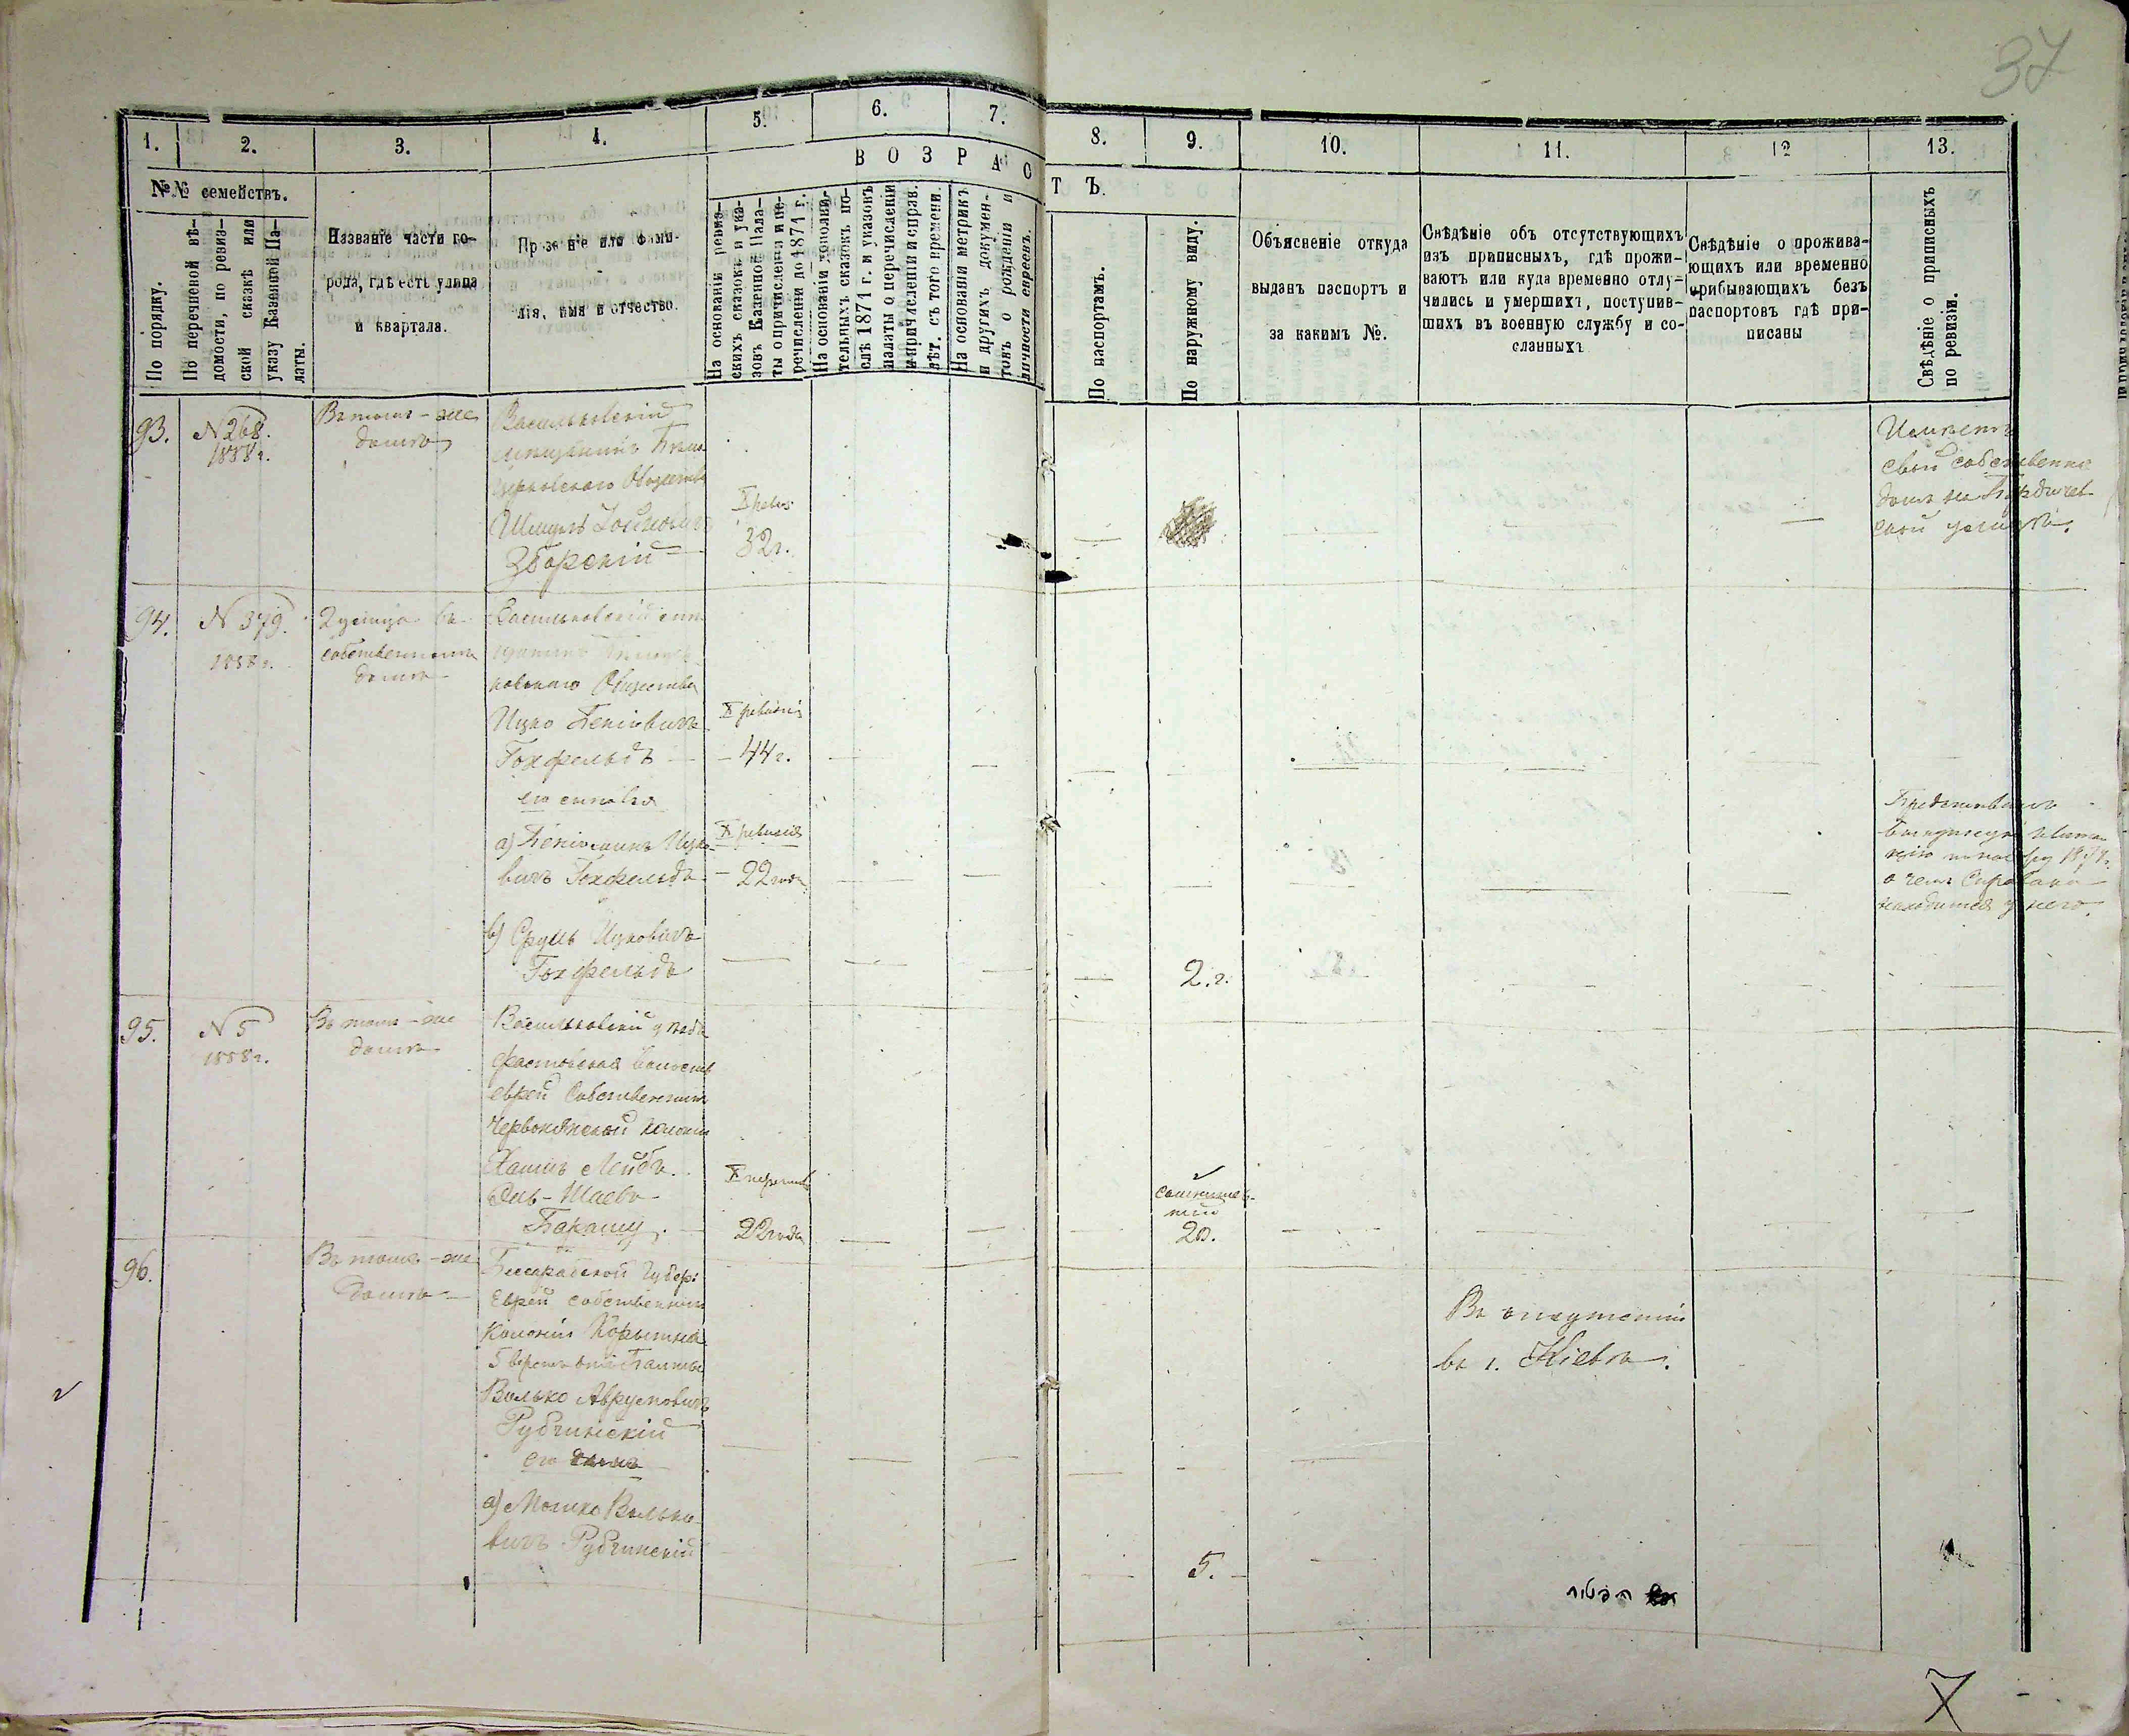 37
1. 2. 3. 4. 5. 6. 7. 8. 9. 10. 11. 12 13.
№№ семействъ.
По порядку.
По перечневой вѣ-
домости, по ревиз-
ской сказкѣ или
указу Казенной Па-
латы.
Названіе части го-
рода, гдѣ есть улица
и квартала.
Прозваніе или фами-
лія, имя и отчество.
ВОЗРАСТЪ.
На основаніи ревиз-
скихъ сказокъ и ука-
зовъ Казенной Пала-
ты о причисленіи и пе-
речисленіи до 1871 г.
На основаніи дополни-
тельныхъ сказокъ по-
слѣ 1871 г. и указовъ
палаты о перечисленіи
и причисленіи и справ.
лѣт. съ того времени.
На основаніи метрикъ
и другихъ докумен-
товъ о рожденіи и
личности евреевъ.
По паспортамъ.
По наружному виду.
Объясненіе откуда
выданъ паспортъ и
за какимъ №.
Свѣдѣніе объ отсутствующихъ
изъ приписныхъ, гдѣ прожи-
ваютъ или куда временно отлу-
чились и умершихъ, поступив-
шихъ въ военную службу и со-
сланныхъ
Свѣдѣніе о прожива-
ющихъ или временно
прибывающихъ безъ
паспортовъ гдѣ при-
писаны
Свѣдѣніе о приписныхъ
по ревизіи.
93.
N 268.
1858 г.
Въ томъ-же
домѣ
Васильковскій
мѣщанинъ Бѣло
церковскаго Общества
Шмуль
Зборскій
X ревиз
32 г.
Имѣетъ
свой собственный
домъ на Бердичев
ской улицѣ.
94.
N 379.
1858 г.
2 улица въ
собственномъ
домѣ
Васильковскій мѣ
щанинъ Бѣлоцер
ковскаго Общества
Ицко Беніовичъ
Гохфельдъ
X ревизія
44 г.
его сыновья
а) Беніоминъ Ицко
вичъ Гохфельдъ
X ревизія
22 года
о чемъ
находится у него.
в) Сруль Ицковичъ
Гохфельдъ
2. г.
95.
N 5
1858 г.
Въ томъ-же
домѣ
Васильковскій уѣздъ
Фастовская волость
еврей Собственникъ
Червонянской колоніи
Хаимъ Лейбъ
Эль-Шаевъ
X
22 года
20.
96.
Въ томъ-же
домѣ
Бессарабской Губер:
Еврей собственникъ
Колоніи
5 верстъ отъ Балты
Волько Аврумовичъ
Рубчинскій
его
а) Мошко Волько
вичъ Рубчинскій
5.
Въ
въ г. Кіевѣ.
7